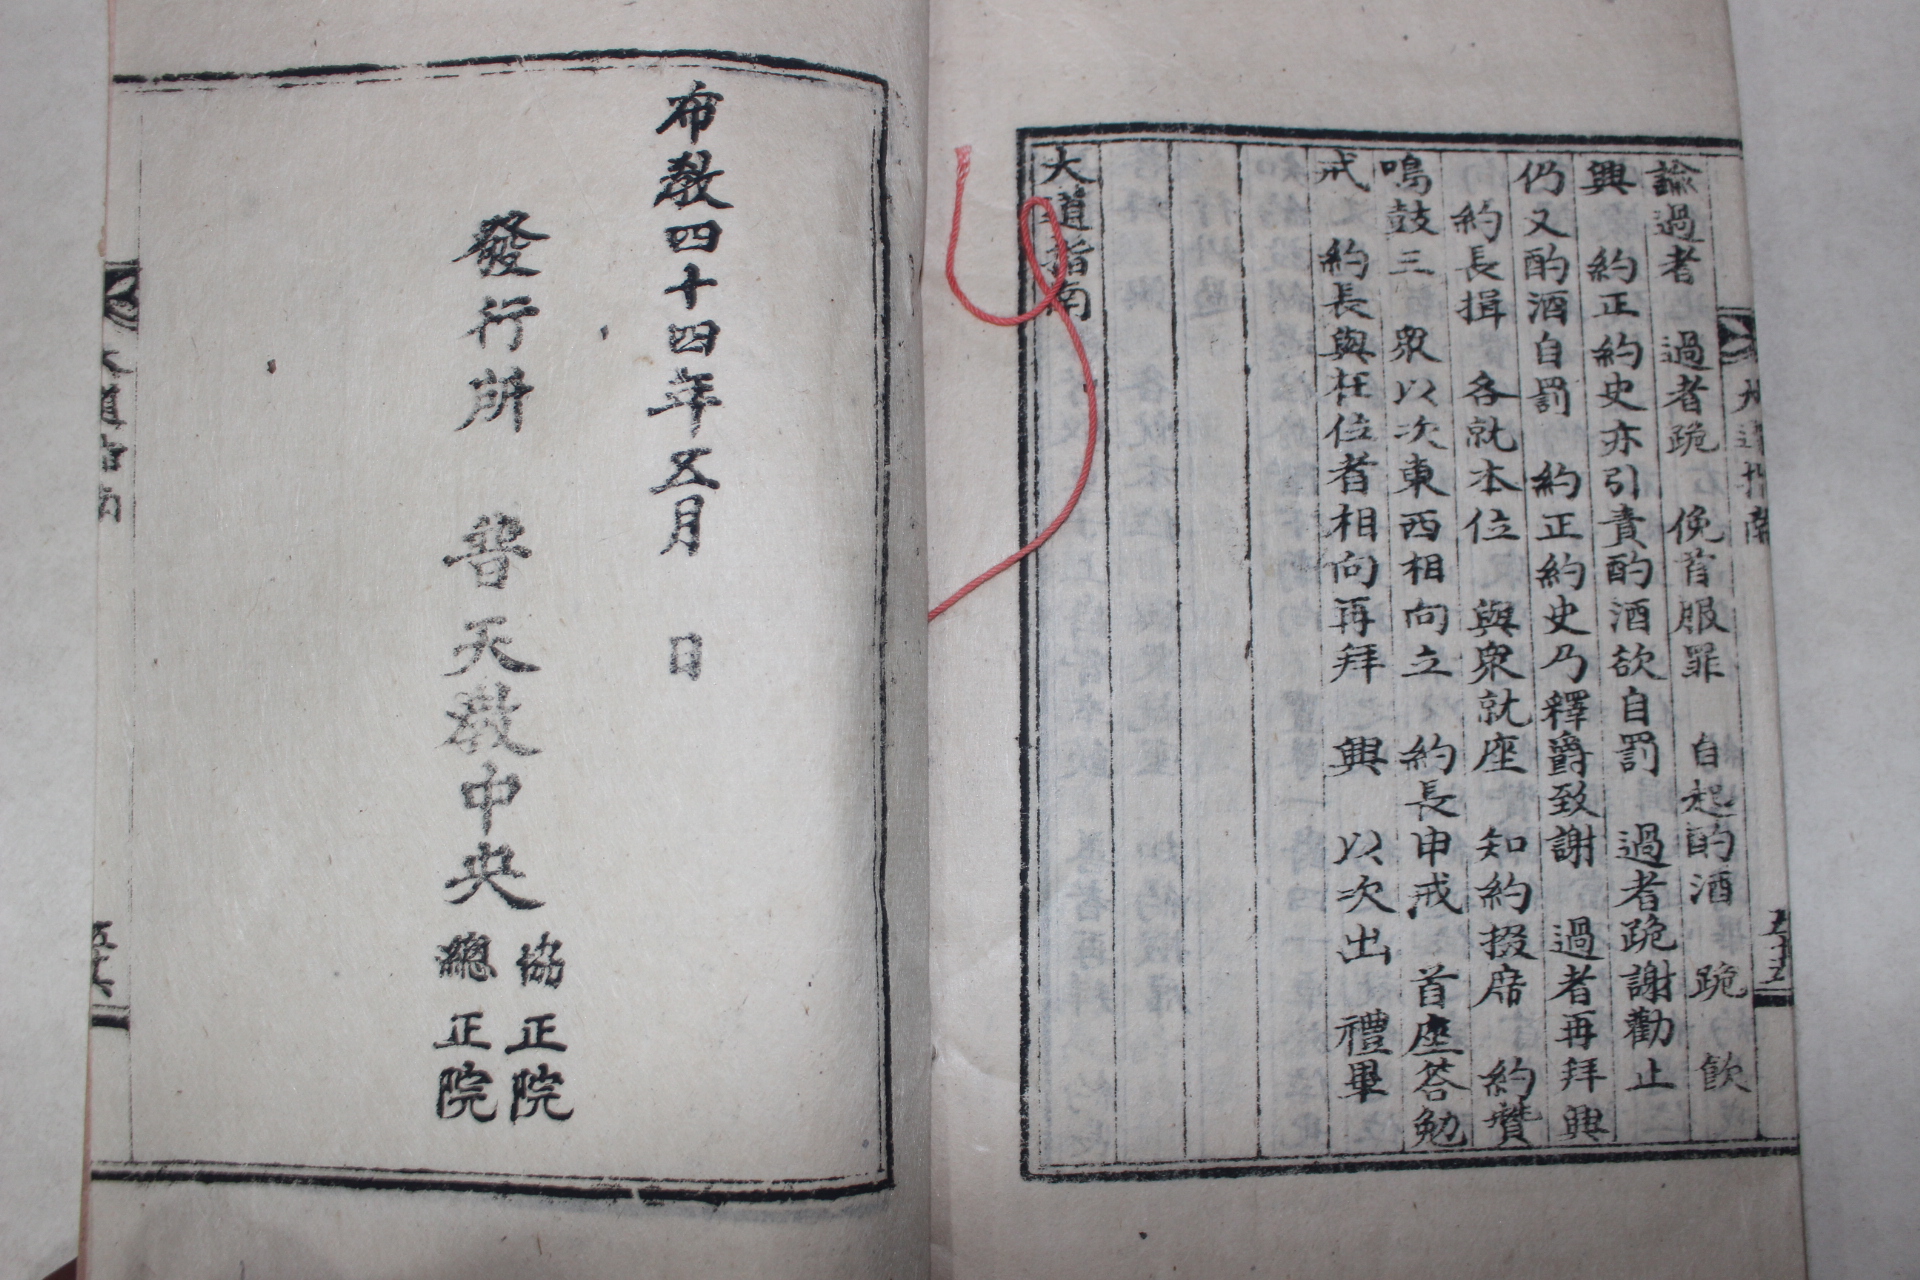 大道指南
五十五
諭過者 過者跪 俛首服罪 自起酌酒 跪 飮
興 約正約史亦引責酌酒欲自罰 過者跪謝勸止
仍又酌酒自罰 約正約史乃釋爵致謝 過者再拜興
約長揖 各就本位 與衆就座 知約掇席 約贊
鳴鼓三 衆以次東西相向立 約長申戒 首座答勉
戒 約長與在位者相向再拜 興 以次出 禮畢
大道指南
布敎四十四年五月 日
發行所 普天敎中央 協正院
總正院
大道指南
五十六